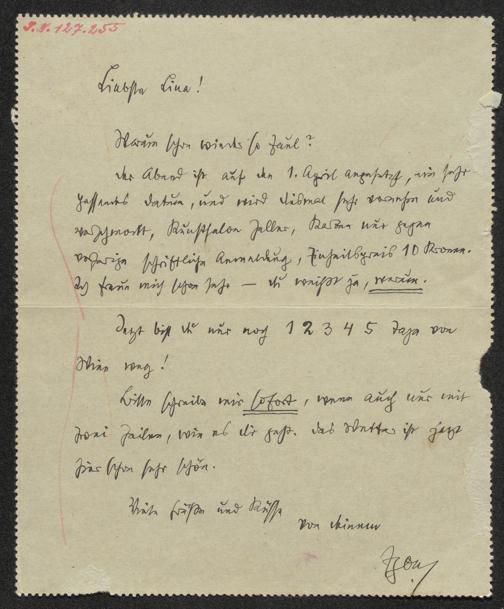 I.N. 127.255
Liebste Lina!
Warum schon wieder so faul?
Der Abend ist auf den 1. April angesetzt, ein sehr
passendes Datum, und wird diesmal sehr vornehm und
, Kunstsalon Heller, Karten nur gegen
vorherige schriftliche Anmeldung, Einheitspreis 10 Kronen.
Ich freue mich schon sehr — du weißt ja, warum.
Jetzt bist du nur noch 1 2 3 4 5 Tage von
Wien weg!
Bitte schreibe mir sofort, wenn auch nur mit
zwei Zeilen, wie es dir geht. Das Wetter ist jetzt
hier schon sehr schön.
Viele Grüße und Küsse
von Deinem
Egon